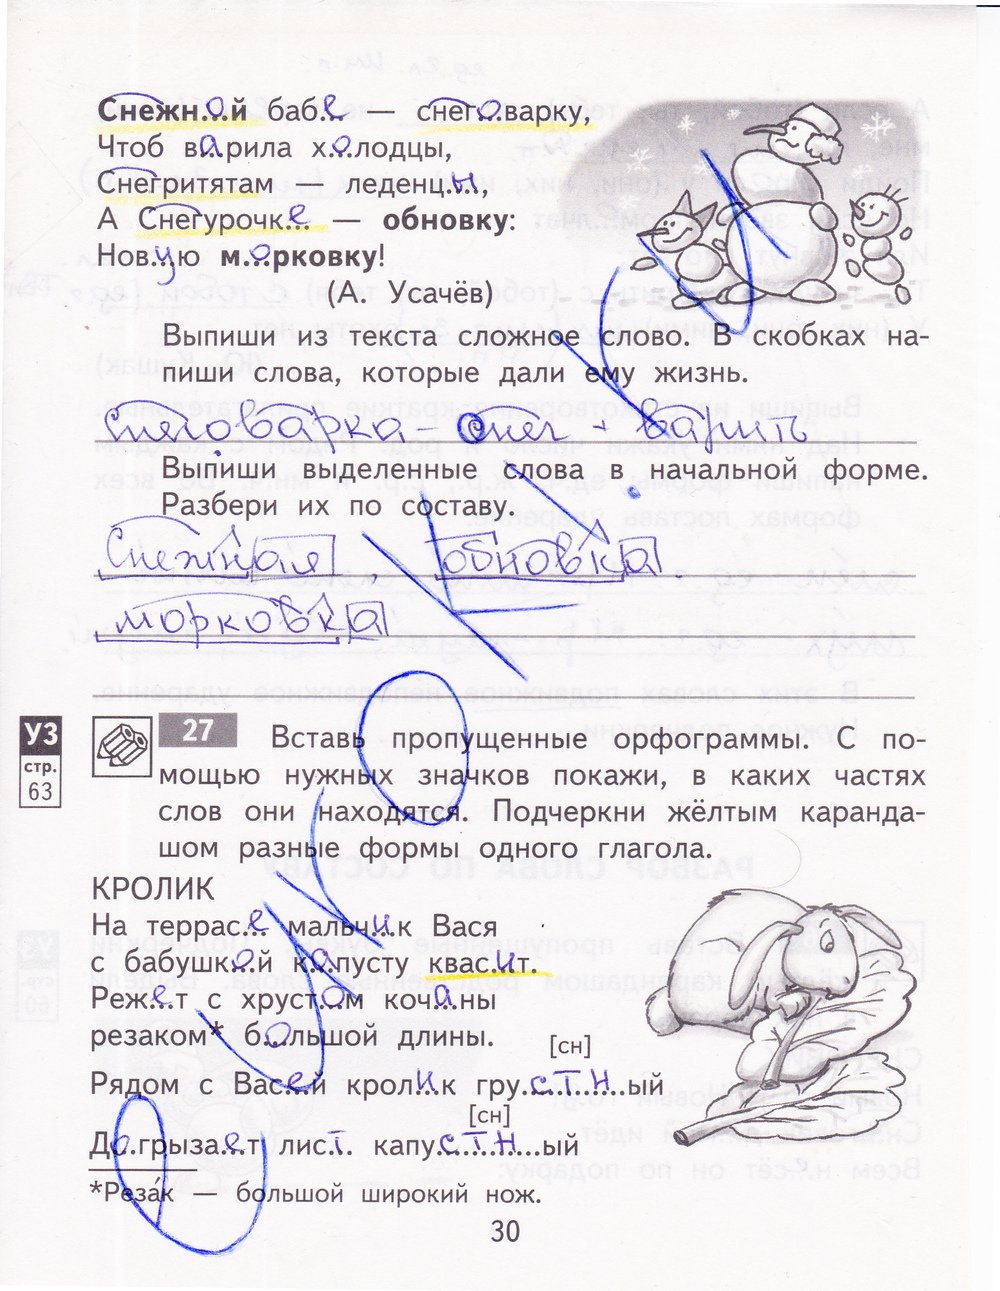 Снежн...о...й баб...е... — снег...о...варку,
Чтоб в...а...рила х...о...лодцы,
Снегритятам — леденц...ы...,
А Снегурочк...е... — обновку:
Нов...у...ю м...о...рковку!
(А. Усачёв)
Выпиши из текста сложное слово. В скобках на-
пиши слова, которые дали ему жизнь.
Снеговарка - снег + варить
Выпиши выделенные слова в начальной форме.
Разбери их по составу.
Снежная, обновка,
морковка
УЗ
стр.
63
27 Вставь пропущенные орфограммы. С по-
мощью нужных значков покажи, в каких частях
слов они находятся. Подчеркни жёлтым каранда-
шом разные формы одного глагола.
КРОЛИК
На террас...е... мальч...и...к Вася
с бабушк...о...й к...а...пусту квас...и...т.
Реж...е...т с хруст...о...м коч...а...ны
резаком* б...о...льшой длины.
[сн]
Рядом с Вас...е...й крол...и...к гру...стн...ый
[сн]
Д...о...грыза...е...т лис...т... капу...стн...ый
*Реза́к — большой широкий нож.
30